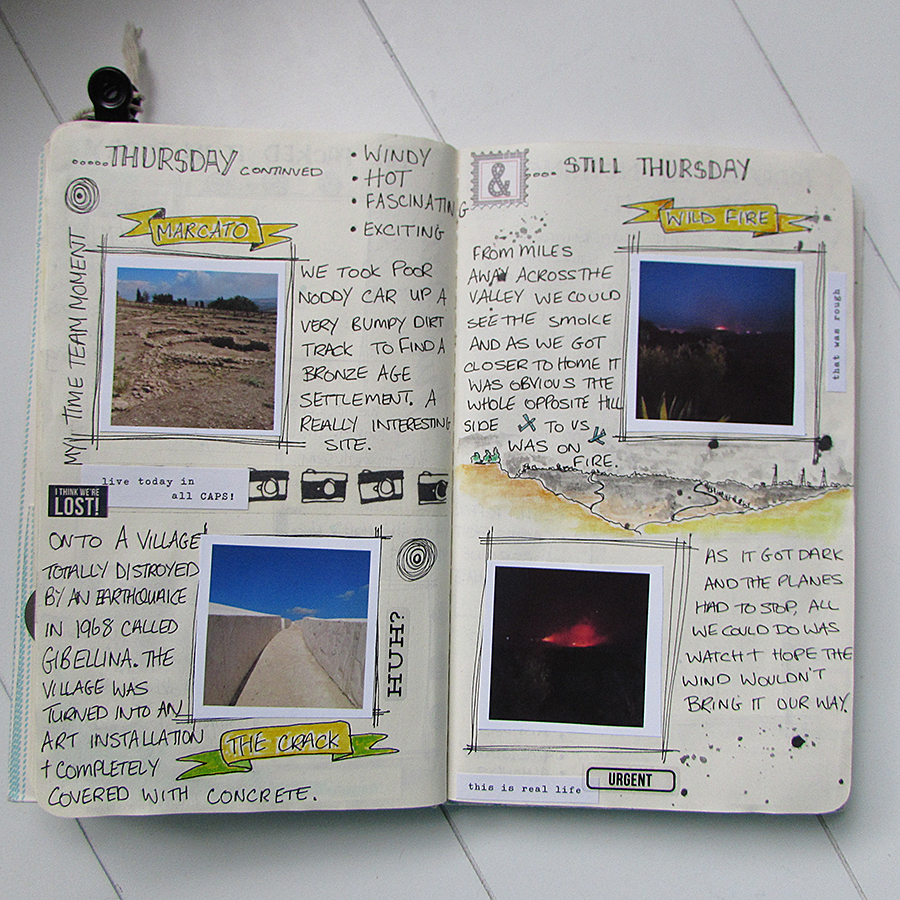 .....THURSDAY CONTINUED
• WINDY
• HOT
• FASCINATING
• EXCITING
MARCATO
MY TIME TEAM MOMENT
WE TOOK POOR
NODDY CAR UP A
VERY BUMPY DIRT
TRACK TO FIND A
BRONZE AGE
SETTLEMENT. A
REALLY INTERESTING
SITE.
live today in
all CAPS!
I THINK WE'RE
LOST!
ONTO A VILLAGE
TOTALLY DISTROYED
BY AN EARTHQUAKE
IN 1968 CALLED
GIBELLINA. THE
VILLAGE WAS
TURNED INTO AN
ART INSTALLATION
+ COMPLETELY
COVERED WITH CONCRETE.
HUH?
THE CRACK
& ... STILL THURSDAY
WILD FIRE
FROM MILES
AWAY ACROSS THE
VALLEY WE COULD
SEE THE SMOKE
AND AS WE GOT
CLOSER TO HOME IT
WAS OBVIOUS THE
WHOLE OPPOSITE HILL
SIDE TO US
WAS ON
FIRE.
that was rough
AS IT GOT DARK
AND THE PLANES
HAD TO STOP, ALL
WE COULD DO WAS
WATCH + HOPE THE
WIND WOULDN'T
BRING IT OUR WAY.
this is real life
URGENT